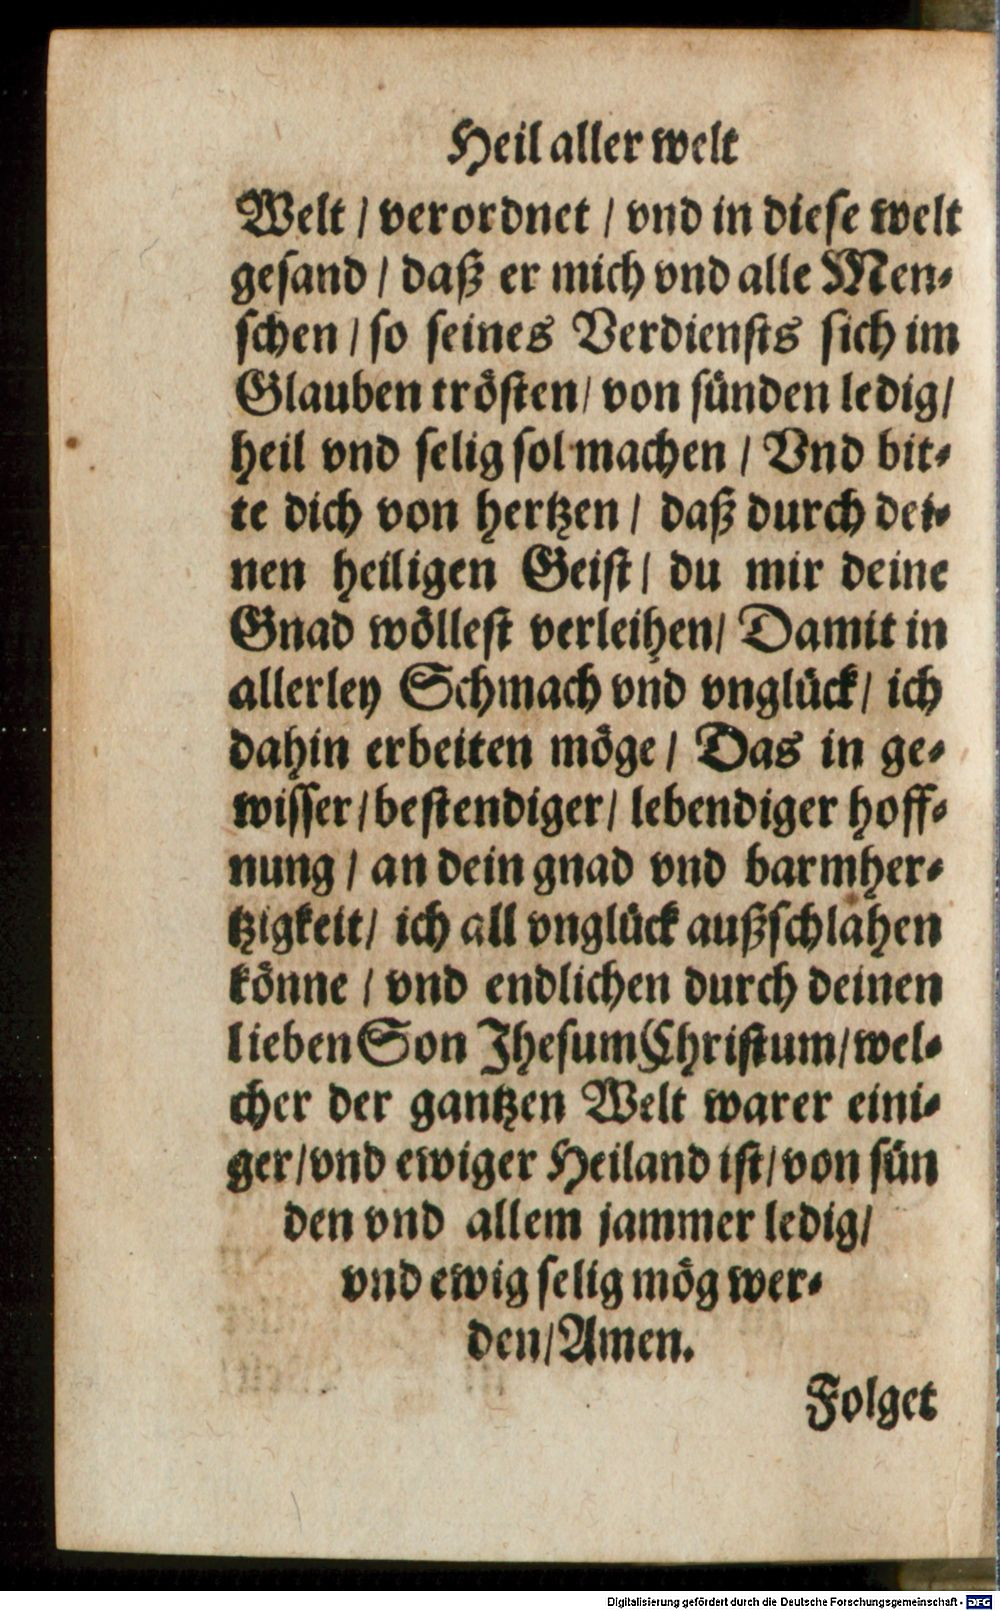 Heil aller welt
Welt / verordnet / vnd in diese welt
gesand / daß er mich vnd alle Men-
schen / so seines Verdiensts sich im
Glauben trösten / von sünden ledig /
heil vnd selig sol machen / Vnd bit-
te dich von hertzen / daß durch dei-
nen heiligen Geist / du mir deine
Gnad wöllest verleihen / Damit in
allerley Schmach vnd vnglück / ich
dahin erbeiten möge / Das in ge-
wisser / bestendiger / lebendiger hoff-
nung / an dein gnad vnd barmher-
tzigkeit / ich all vnglück außschlahen
könne / vnd endlichen durch deinen
lieben Son Jhesum Christum / wel-
cher der gantzen Welt warer eini-
ger / vnd ewiger Heiland ist / von sün
den vnd allem jammer ledig /
vnd ewig selig mög wer-
den / Amen.
Folget
Digitalisierung gefördert durch die Deutsche Forschungsgemeinschaft - DFG